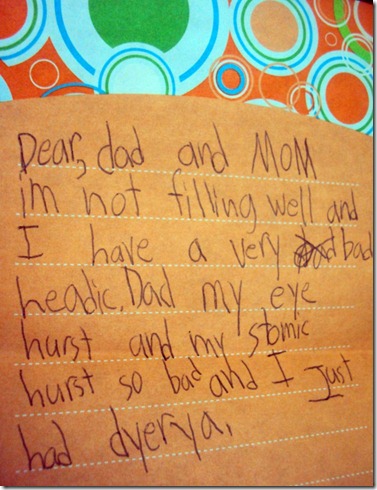 Dear, dad and MOM
im not filling well and
I have a very bad
headic, Dad my eye
hurst and my stomic
hurst so bad and I Just
had dyerya.